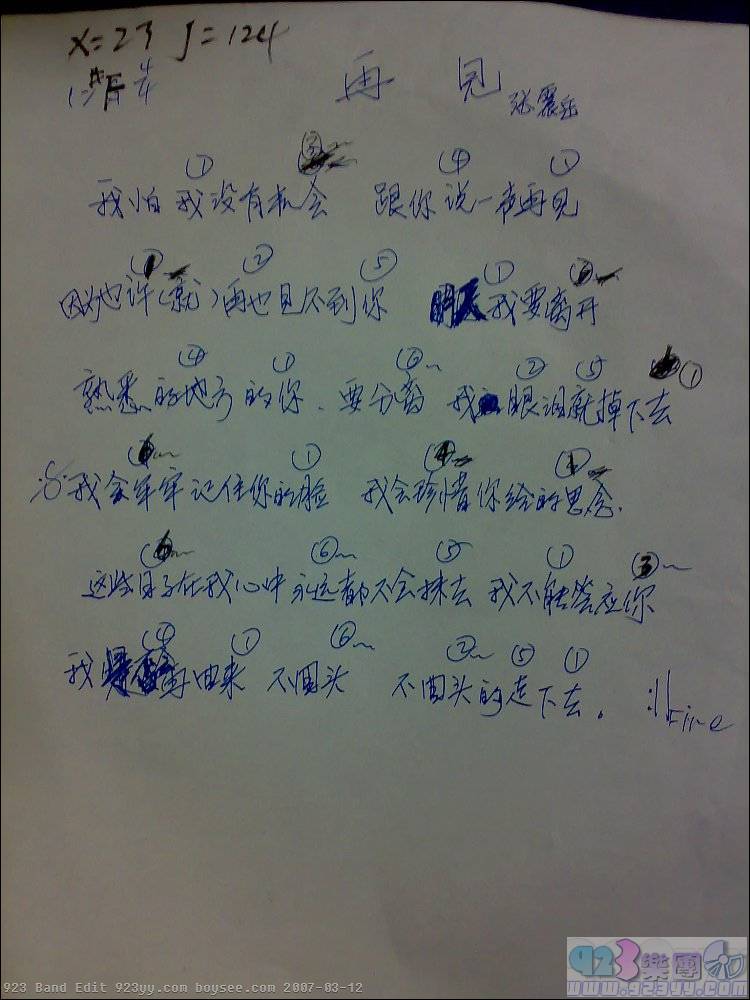 X=23 J=124
1=#F 4/4 再 见 张震岳
① ③ ④ ①
我怕我没有机会 跟你说一声再见
① ② ⑤ ①
因为也许(就)再也见不到你 明天我要离开
④ ① ⑥ ② ⑤ ①
熟悉的地方的你、要分离 我 眼泪就掉下去
① ④
我会牢牢记住你的脸 我会珍惜你给的思念.
⑥ ⑤ ① ③
这些日子在我心中永远都不会抹去 我不能答应你
④ ① ⑥ ② ⑤ ①
我 再回来 不回头 不回头的走下去。 :|| Fine
923 Band Edit 923yy.com boysee.com 2007-03-12
923樂團
www.923yy.com